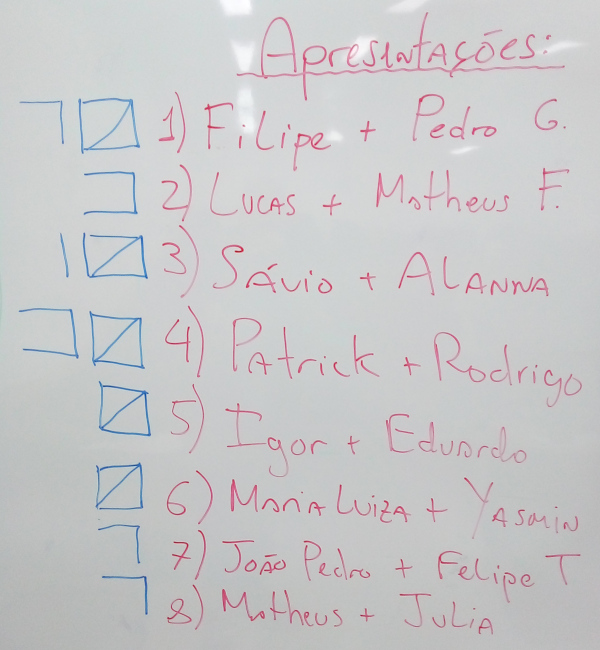 Apresentações:
1) Filipe + Pedro G.
2) Lucas + Matheus F.
3) Sávio + Alanna
4) Patrick + Rodrigo
5) Igor + Eduardo
6) Maria Luiza + Yasmin
7) João Pedro + Felipe T
8) Matheus + Julia